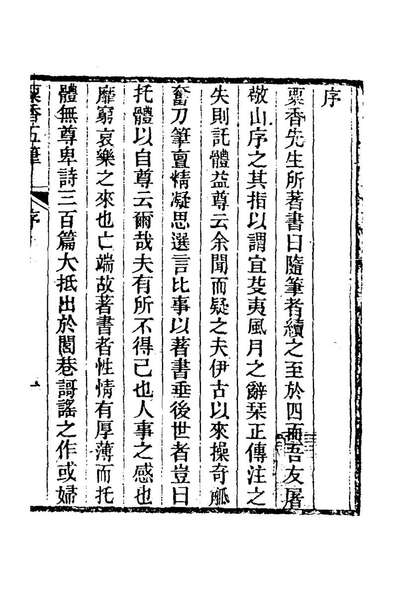 序
粟香先生所著書曰隨筆者續之至於四而吾友屠
敬山序之其指以謂宜芟夷風月之辭栞正傳注之
失則託體益尊云余聞而疑之夫伊古以來操奇觚
奮刀筆亶精凝思選言比事以著書垂後世者豈曰
托體以自尊云爾哉夫有所不得已也人事之感也
靡窮哀樂之來也亡端故著書者性情有厚薄而托
體無尊卑詩三百篇大抵出於閭巷謌謠之作或婦
粟香五筆
序
一